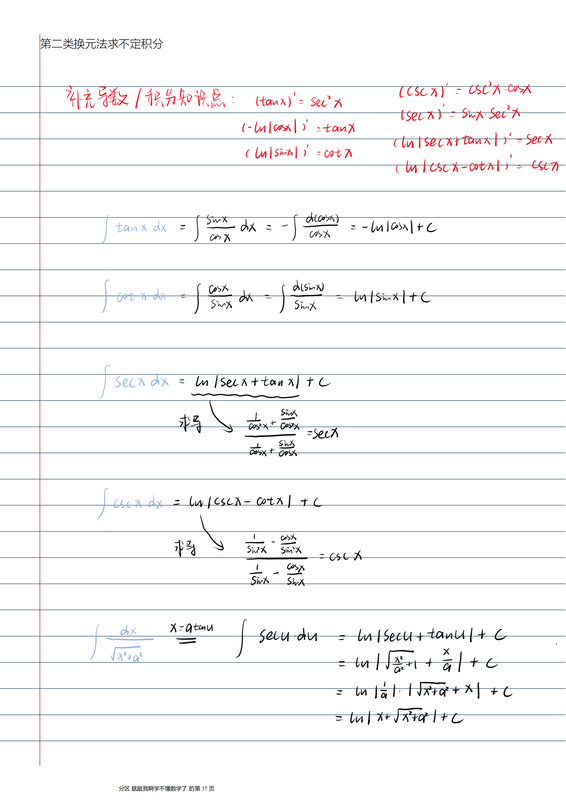 第二类换元法求不定积分
补充导数/积分知识点: (tanx)' = sec²x (cscx)' = csc²x·cosx
(-ln|cosx|)' = tanx (secx)' = sinx·sec²x
(ln|sinx|)' = cotx (ln|secx+tanx|)' = secx
(ln|cscx-cotx|)' = cscx
∫ tanx dx = ∫ sinx/cosx dx = -∫ d(cosx)/cosx = -ln|cosx|+C
∫ cotx dx = ∫ cosx/sinx dx = ∫ d(sinx)/sinx = ln|sinx|+C
∫ secx dx = ln|secx+tanx| + C
求导 (1/cos²x + sinx/cos²x)/(1/cosx + sinx/cosx) = secx
∫ cscx dx = ln|cscx-cotx| + C
求导 (1/sin²x - cosx/sin²x)/(1/sinx - cosx/sinx) = cscx
∫ dx/√(x²+a²) x=atanu ∫ secu·du = ln|secu+tanu| + C
= ln|√(x²/a²+1) + x/a| + C
= ln|1/a|·|√(x²+a²)+x| + C
= ln|x+√(x²+a²)| + C
分区 鼠鼠我啊学不懂数学了 的第 37 页